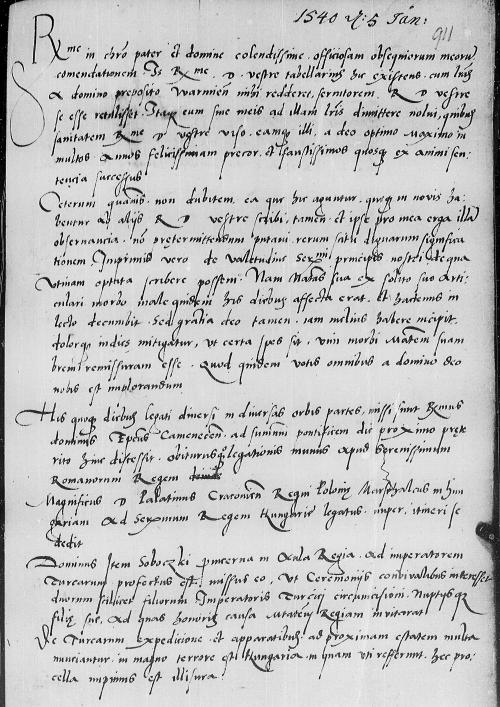 1540 d: 5 Jan:
911
Rme in chro pater et domine colendissime. officiosam obsequiorum meoru
comendationem. Is Rme. D. vestre tabellarius huc existens. cum lris
a domino preposito Warmien mihi redderet, seruitorem. R D vestre
se esse retulisset. Itaq eum sine meis ad illam lris dimittere nolui, quibus
sanitatem Rme D vestre viso. eamq illi, a deo optimo maximo in
multos annos felicissimam precor. et faustissimos quosq ex animi sen-
tencia successus
Ceterum quamuis non dubitem, ea que hic aguntur. queq in novis ha-
bentur ab alijs R D vestre scribi, tamen et ipse pro mea erga illa
obseruancia. no pretermittendum putaui, rerum satis dignarum significa
tionem. Inprimis vero de valetudine Sermi principis nostri de qua
Vtinam optata scribere possem. Nam Matas sua ex solito suo Arti-
culari morbo male quidem his diebus affecta erat. et hactenus in
lecto decumbit. Sed gratia deo tamen. iam melius habere incipit.
dolorq indies mitigatur, vt certa spes sit, vim morbi Matem suam
breui remissuram esse. Quod quidem votis omnibus a domino deo
nobis est implorandum
His quoq diebus legati diuersi in diuersas orbis partes, missi sunt Rmus
dominus Epus Camenecen. ad summu pontificem die proximo prete
rito hinc discessit. obiturus q legationis munus apud Serenissimum
Romanorum Regem
Magnificus D Palatinus Cracouien Regni Polonie Marschalcus in hun
gariam ad Sermum Regem Hungarie legatus. nuper, itineri se
dedit
Dominus Item Soboczki pincerna in Aula Regia. ad imperatorem
Turcarum profectus est, missus eo, vt Ceremonijs conuiualibus interesset
duorum scilicet filiorum Imperatoris Turcici circumcisioni. Nuptijsq
filie sue. ad quas honoris causa Mtatem Regiam inuitarat
De Turcarum expedicione. et apparatibus ad proximam estatem multa
nunciantur. in magno terrore est Hungaria. in quam vti referunt. hec pro-
cella inprimis est illisura